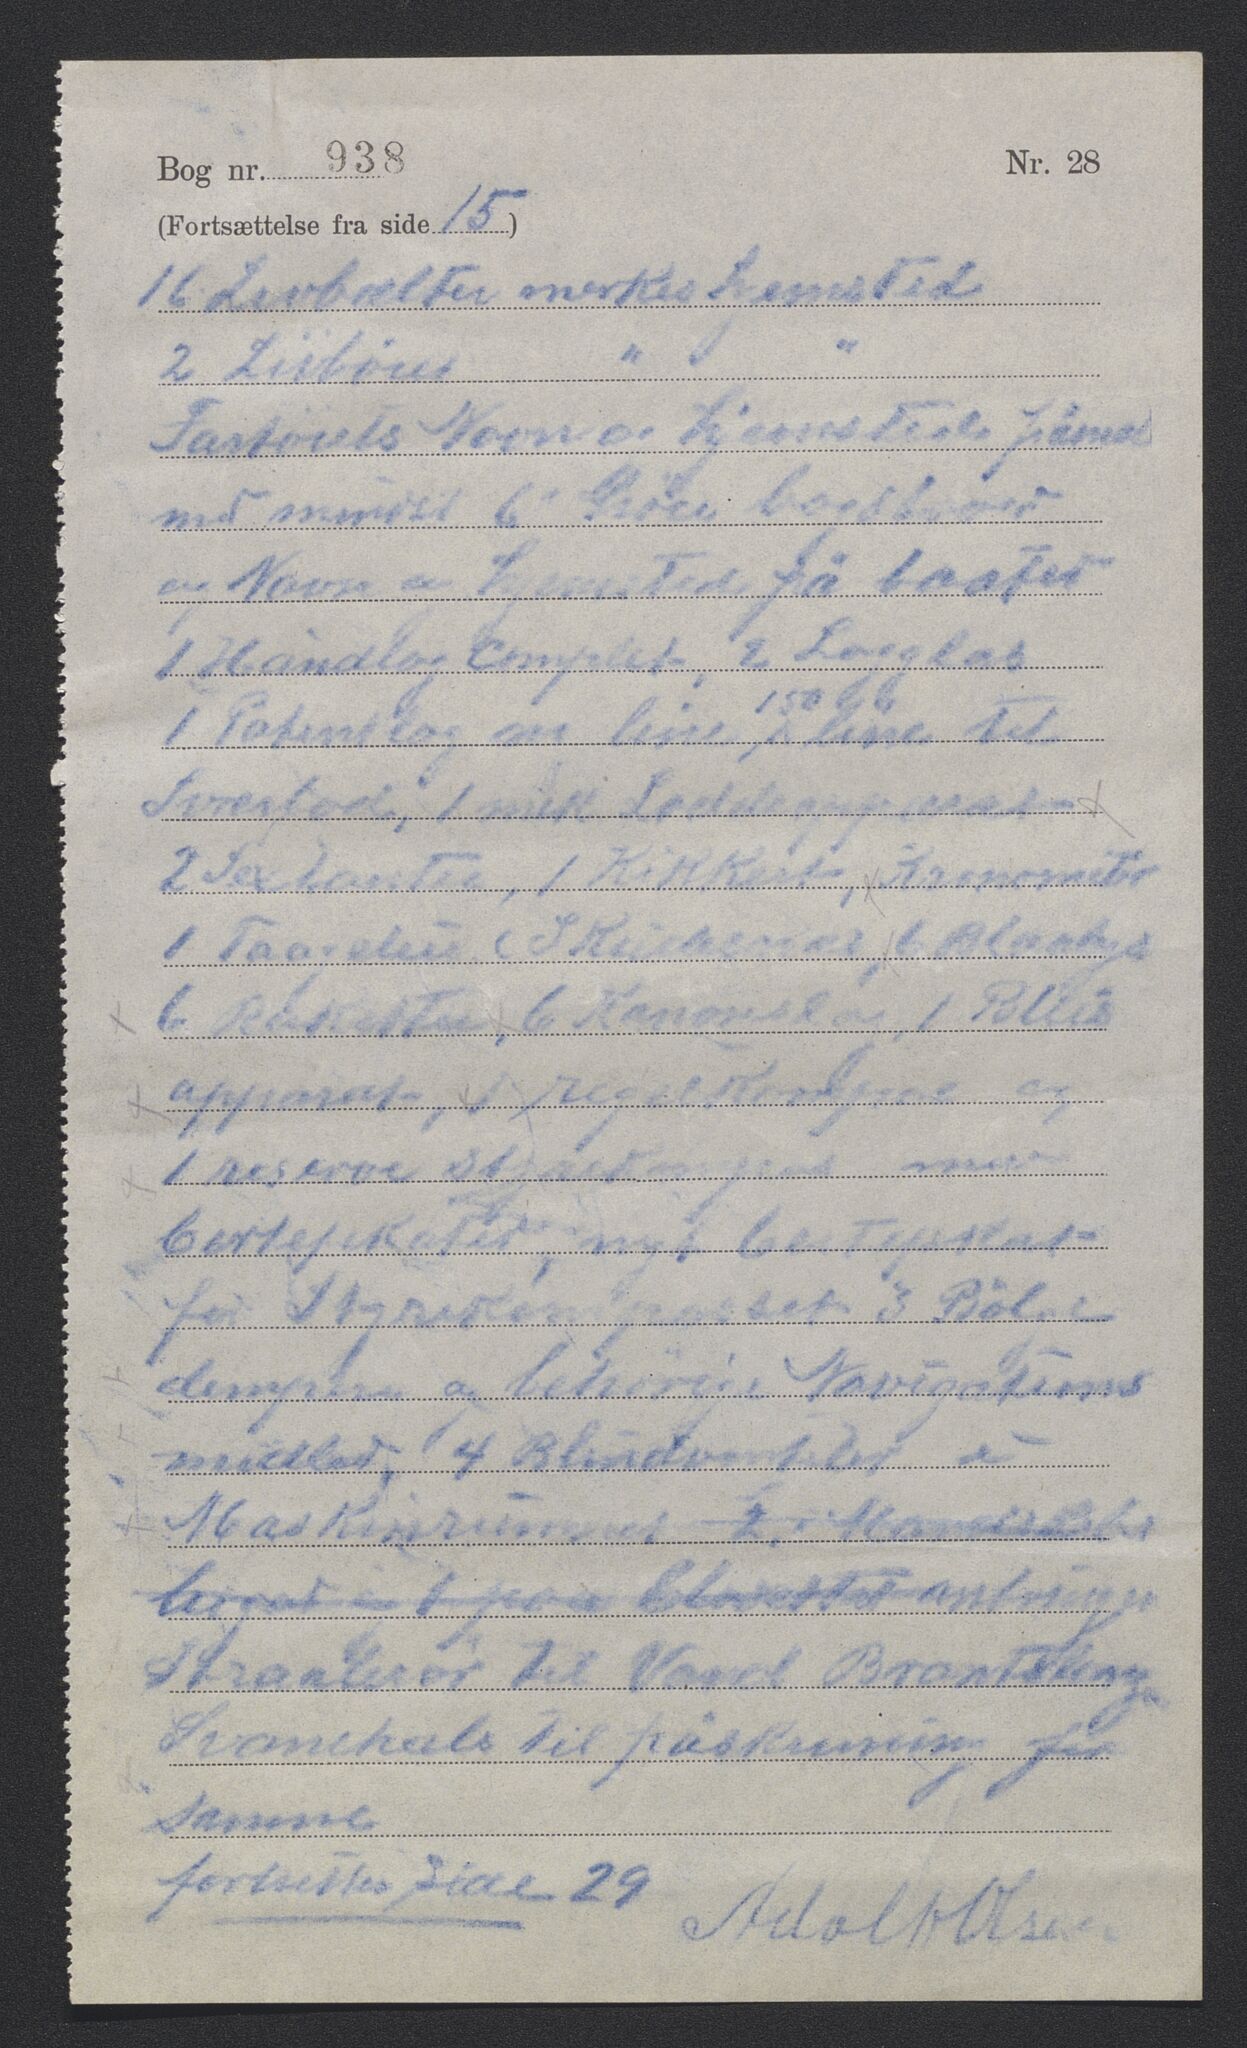 Bog nr. 938 Nr. 28
(Fortsættelse fra side 15)
16 Livbælter merkes Hjemsted
2 Livbøier " "
Fartöiets Navn og Hjemsted påmal
må mindst 6" Höie bogstaver
og Navn og Hjemsted på baater
1 Håndlog Complet, 2 Logglas
1 Patentlog en line, 150 line til
Sværlod, 1 nat Loddeapparat
2 Sextanter, 1 Kikkert, Kronometer
1 Taagelur, 6 Blaalys
6 Raketter, 6 Kanonslag, 1 Blus
apparat, 1 regelkompas og
1 reserve Styrekompas med
Certefikater, nyt Certefikat
for Styrekompasset 3 Bölge
dempere og behörige Navigations
midler, 4 Blindventiler i
Maskinrummet 2 i Mandskabs
anbringes
Straalerör til Vand Brantslange
Svanehals til påskruning for
samme
fortsettes side 29 Adolf Olsen